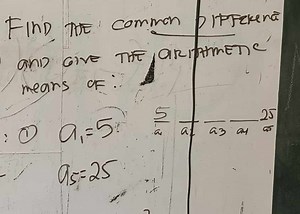 FIND THE COMMON DIFFERENCE
and GIVE THE ARITHMETIC
means OF:
: ① a₁=5 5 _ _ _ 25
a a₂ a₃ a₄ a₅
a₅=25